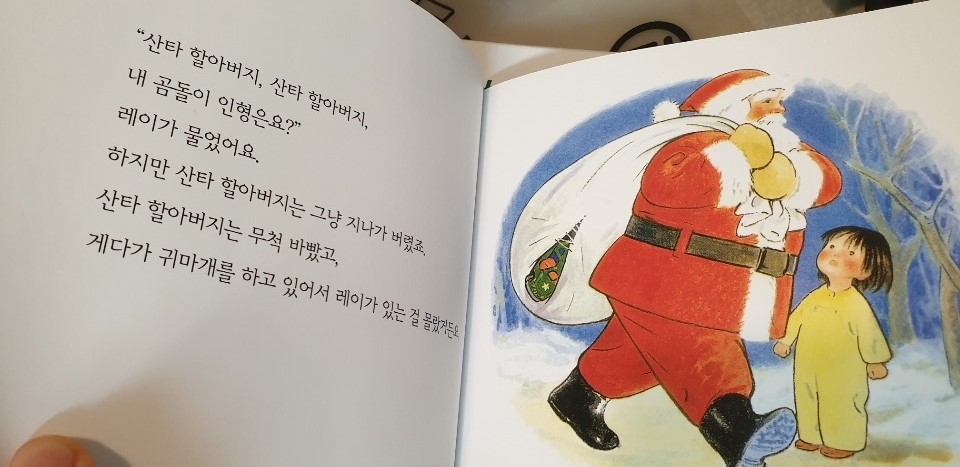 “산타 할아버지, 산타 할아버지,
내 곰돌이 인형은요?”
레이가 물었어요.
하지만 산타 할아버지는 그냥 지나가 버렸죠.
산타 할아버지는 무척 바빴고,
게다가 귀마개를 하고 있어서 레이가 있는 걸 몰랐거든요.